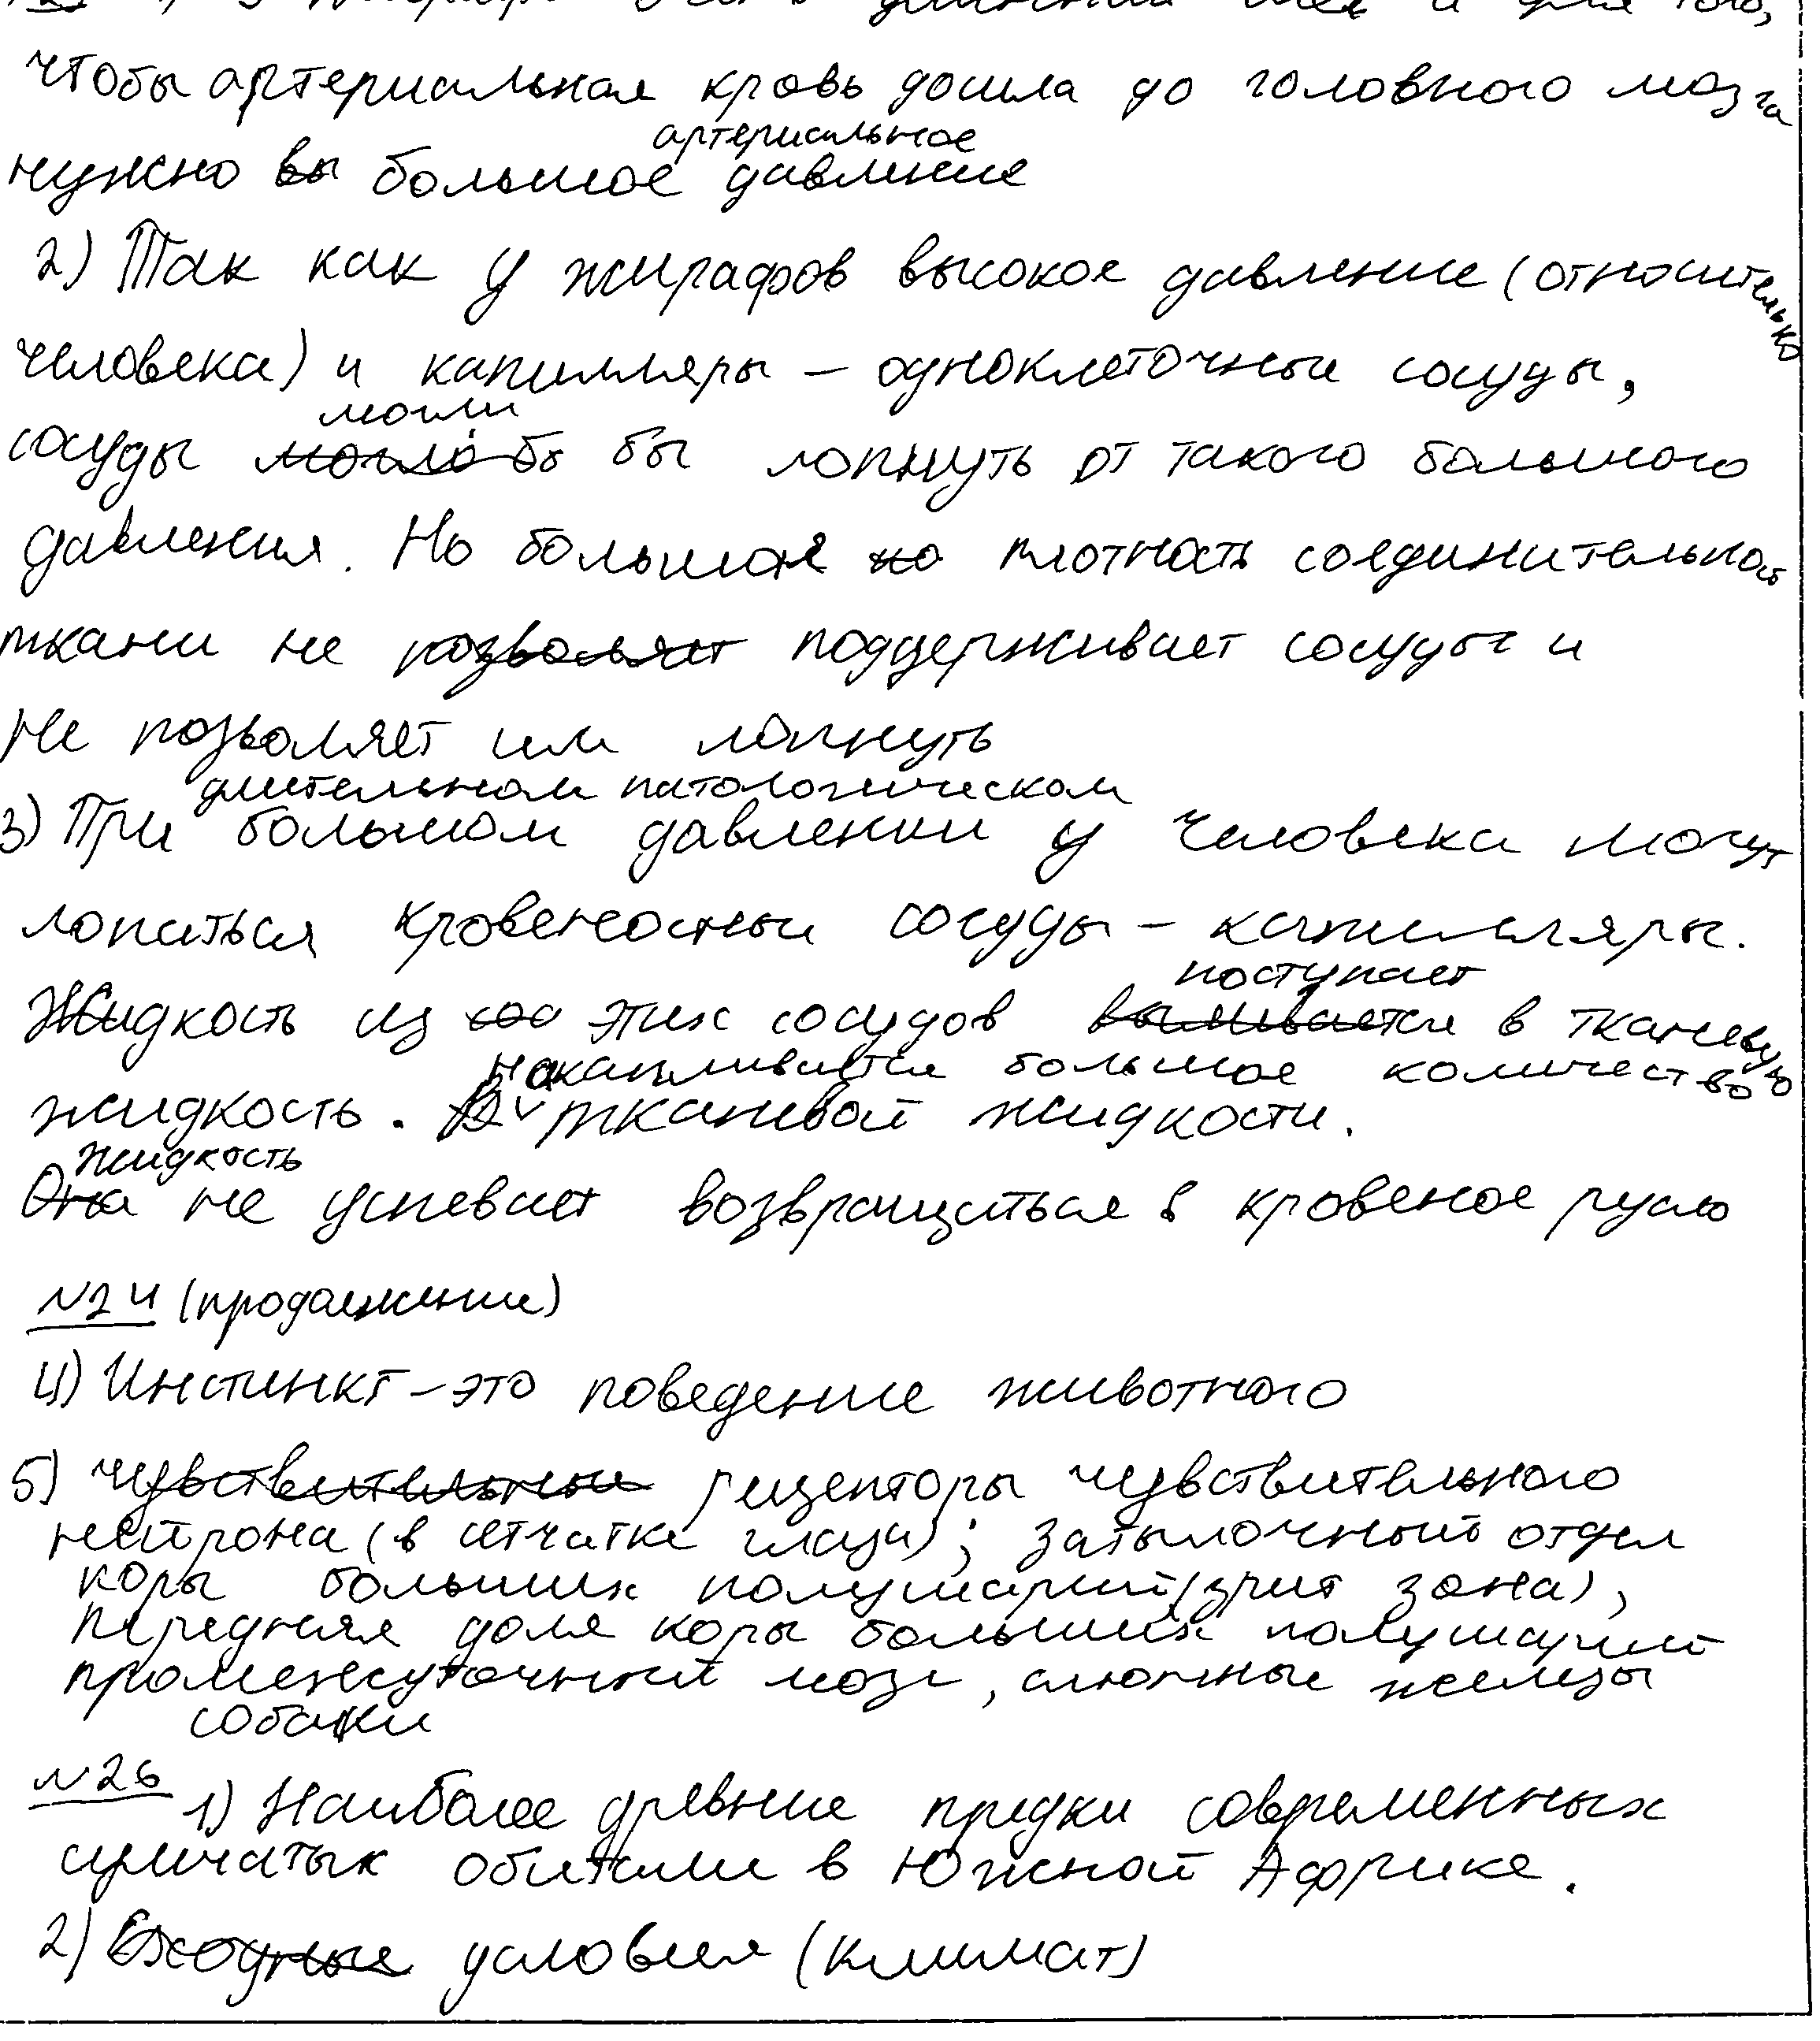 чтобы артериальная кровь дошла до головного мозга
артериальное
нужно вы большое давление
2) Так как у жирафов высокое давление (относительно
человека) и капилляры – одноклеточные сосуды,
могли
сосуды могло бы лопнуть от такого большого
давления. Но большая плотность соединительной
ткани не позволяет поддерживает сосуды и
не позволяет им лопнуть
длительном патологическом
3) При большом давлении у человека могут
лопаться кровеносные сосуды – капилляры.
поступает
Жидкость из этих сосудов выливается в тканевую
накапливается большое количество
жидкость. В тканевой жидкости.
жидкость
Она не успевает возвращаться в кровеное русло
№24 (продолжение)
4) Инстинкт – это поведение животного
5) чувствительные рецепторы чувствительного
нейрона (в сетчатке глаза); затылочный отдел
коры больших полушарий (зрит зона),
передняя доля коры больших полушарий
промежуточный мозг, слюнные железы
собаки
№26
1) Наиболее древние предки современных
сумчатых обитали в Южной Африке.
2) Сходные условия (климат)